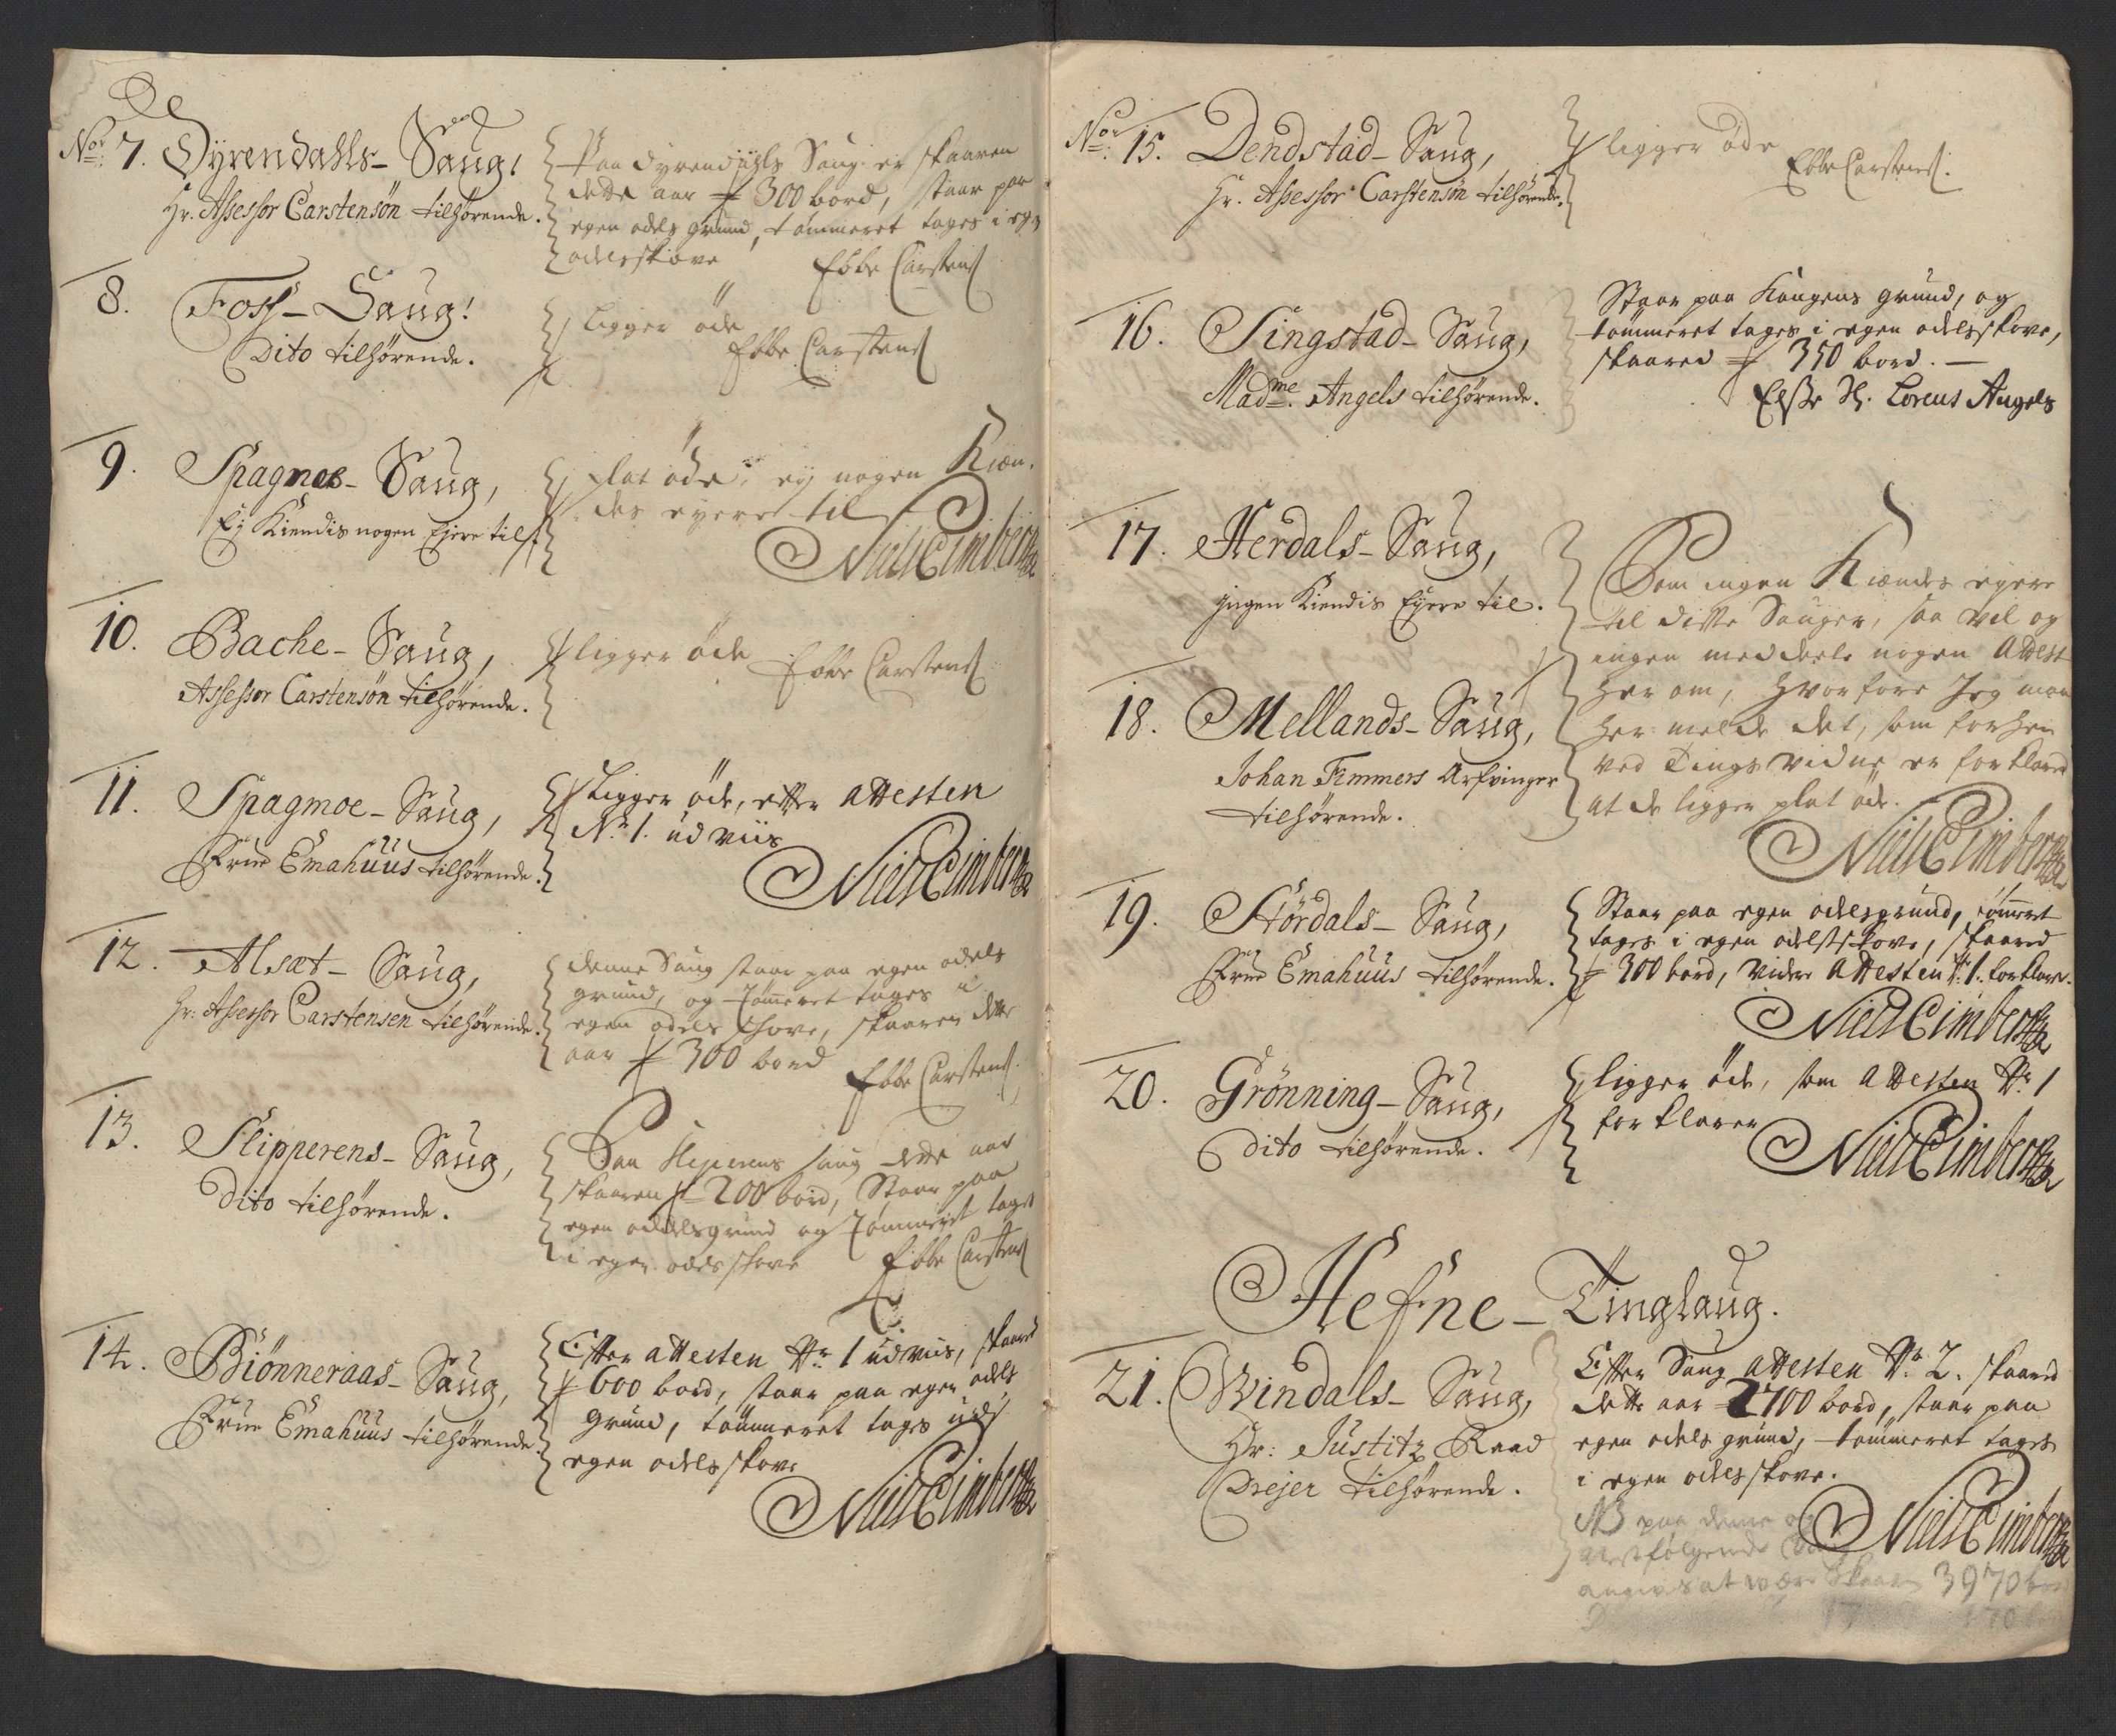 Nor: 7. Dyrendahls- Saug,
Hr. Assessor Carstensön tilhørende.
Paa dyrendahls Saug er skaaren
dette aar 300 bord, staar paa
egen odels grund, tømmeret tages i egen
odelsskove Ebbe Carstens
8. Foss- Saug!
Dito tilhørende.
ligger öde
Ebbe Carstens
9. Spagnes- Saug,
Ej Kiendis nogen Ejere til.
plat öde, ej nogen Kien-
des eyere til
Niels Cimber
10. Bache- Saug,
Assessor Carstensön tilhørende.
ligger öde Ebbe Carstens
11. Spagmoe- Saug,
Frue Emahuus tilhørende.
Ligger öde, efter attesten
No. 1. udviis
Niels Cimber
12. Alsæt- Saug,
Hr. Assessor Carstensen tilhørende.
denne Saug staar paa egen odels
grund, og tømeret tages i
egen odels skove, skaaren dette
aar 300 bord Ebbe Carstens
13. Slipperens- Saug,
Dito tilhørende.
Paa Sliperens saug dette aar
skaaren 200 bord, Staar paa
egen oddelsgrund og tømmeret tages
i egen odels skove Ebbe Carstens
14. Biönneraas- Saug,
Frue Emahuus tilhørende.
Efter attesten No. 1 udviis, skaaret
600 bord, staar paa egen odels
grund, tømmeret tages udj
egen odelsskove
Niels Cimber
Nor: 15. Dendstad- Saug,
Hr. Assessor Carstensön tilhørende.
ligger öde
Ebbe Carstens.
16. Singstad- Saug,
Madme. Angels tilhørende.
Staar paa Kongens grund, og
tømmeret tages i egen odelsskove,
skaaret 350 bord.
Sl. Lorens Angels
17. Herdals- Saug,
Ingen Kiendis Ejere til.
18. Mellands- Saug,
Johan Temmers Arfvinger
tilhørende.
Som ingen Kiendes eyere
til disse Sauger, saa vel og
ingen meddeele nogen attest
her om, hvorfore Jeg maa
her melde det, som forhen
ved Tings vidne er forklaret
at de ligger plat öde.
Niels Cimber
19. Hördals- Saug,
Frue Emahuus tilhørende.
Staar paa egen odelsgrund, tömeret
tages i egen odelsskove, skaaret
300 bord, videre attesten No. 1. forklarer.
Niels Cimber
20. Grönning- Saug,
Dito tilhørende.
ligger öde, som attesten No. 1
forklarer
Niels Cimber
Hefne- Tinglaug.
21. Windals- Saug,
Hr: Justitz Raad
Drejer tilhørende.
Efter Saug attesten No. 2. skaaret
dette aar 2700 bord, staar paa
egen odels grund, tømmeret tages
i egen odelsskove.
Niels Cimber
NB paa denne og
næstfølgende
angives at være skaaren 3970 bord